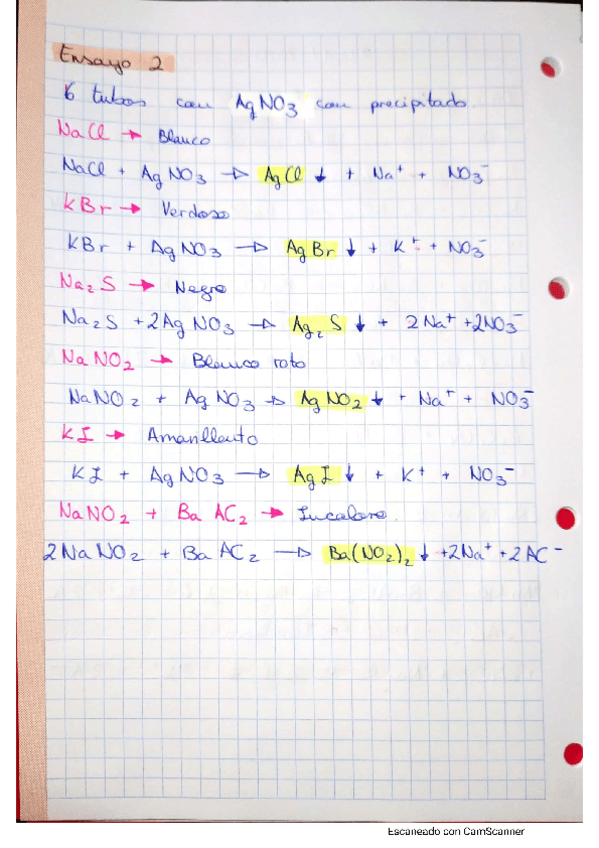 Ensayo 2
6 tubos con AgNO₃ con precipitado.
NaCl → Blanco
NaCl + AgNO₃ → AgCl ↓ + Na⁺ + NO₃⁻
KBr → Verdoso
KBr + AgNO₃ → AgBr ↓ + K⁺ + NO₃⁻
Na₂S → Negro
Na₂S + 2AgNO₃ → Ag₂S ↓ + 2Na⁺ + 2NO₃⁻
NaNO₂ → Blanco roto
NaNO₂ + AgNO₃ → AgNO₂ ↓ + Na⁺ + NO₃⁻
KI → Amarillento
KI + AgNO₃ → AgI ↓ + K⁺ + NO₃⁻
NaNO₂ + BaAC₂ → Incoloro.
2NaNO₂ + BaAC₂ → Ba(NO₂)₂ ↓ + 2Na⁺ + 2AC⁻
Escaneado con CamScanner